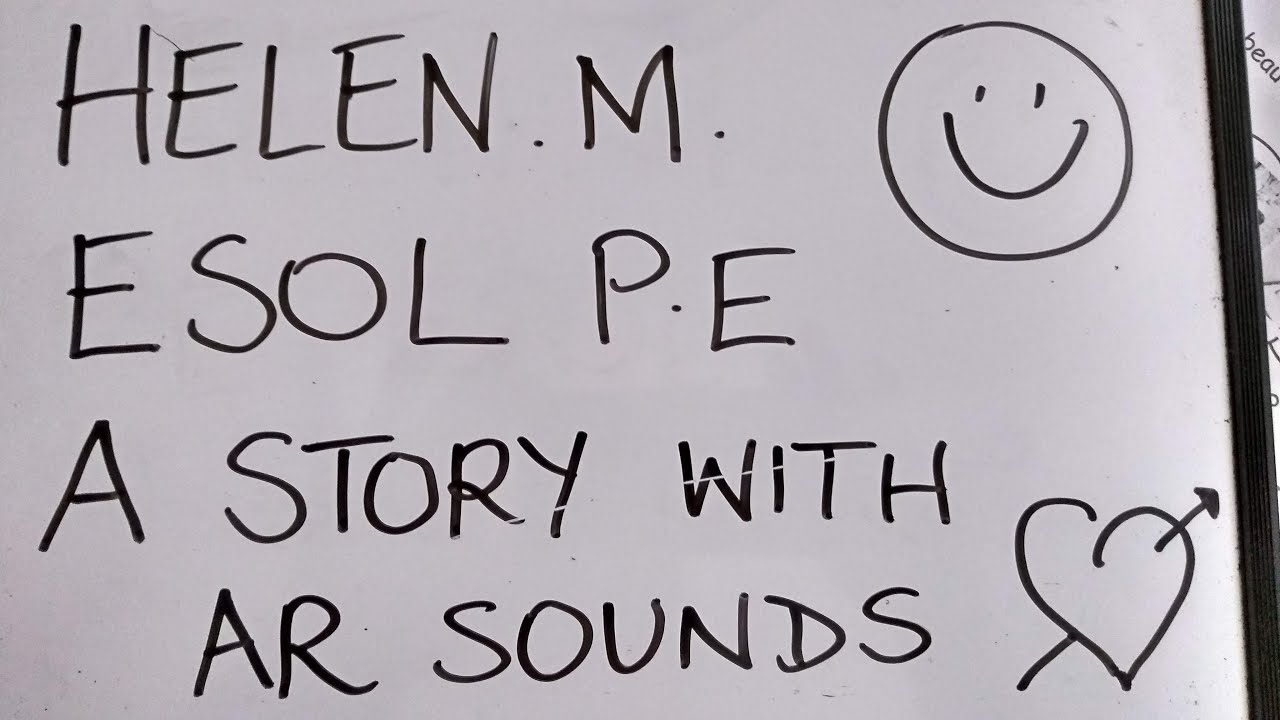 HELEN. M.
ESOL P.E
A STORY WITH
AR SOUNDS
beau